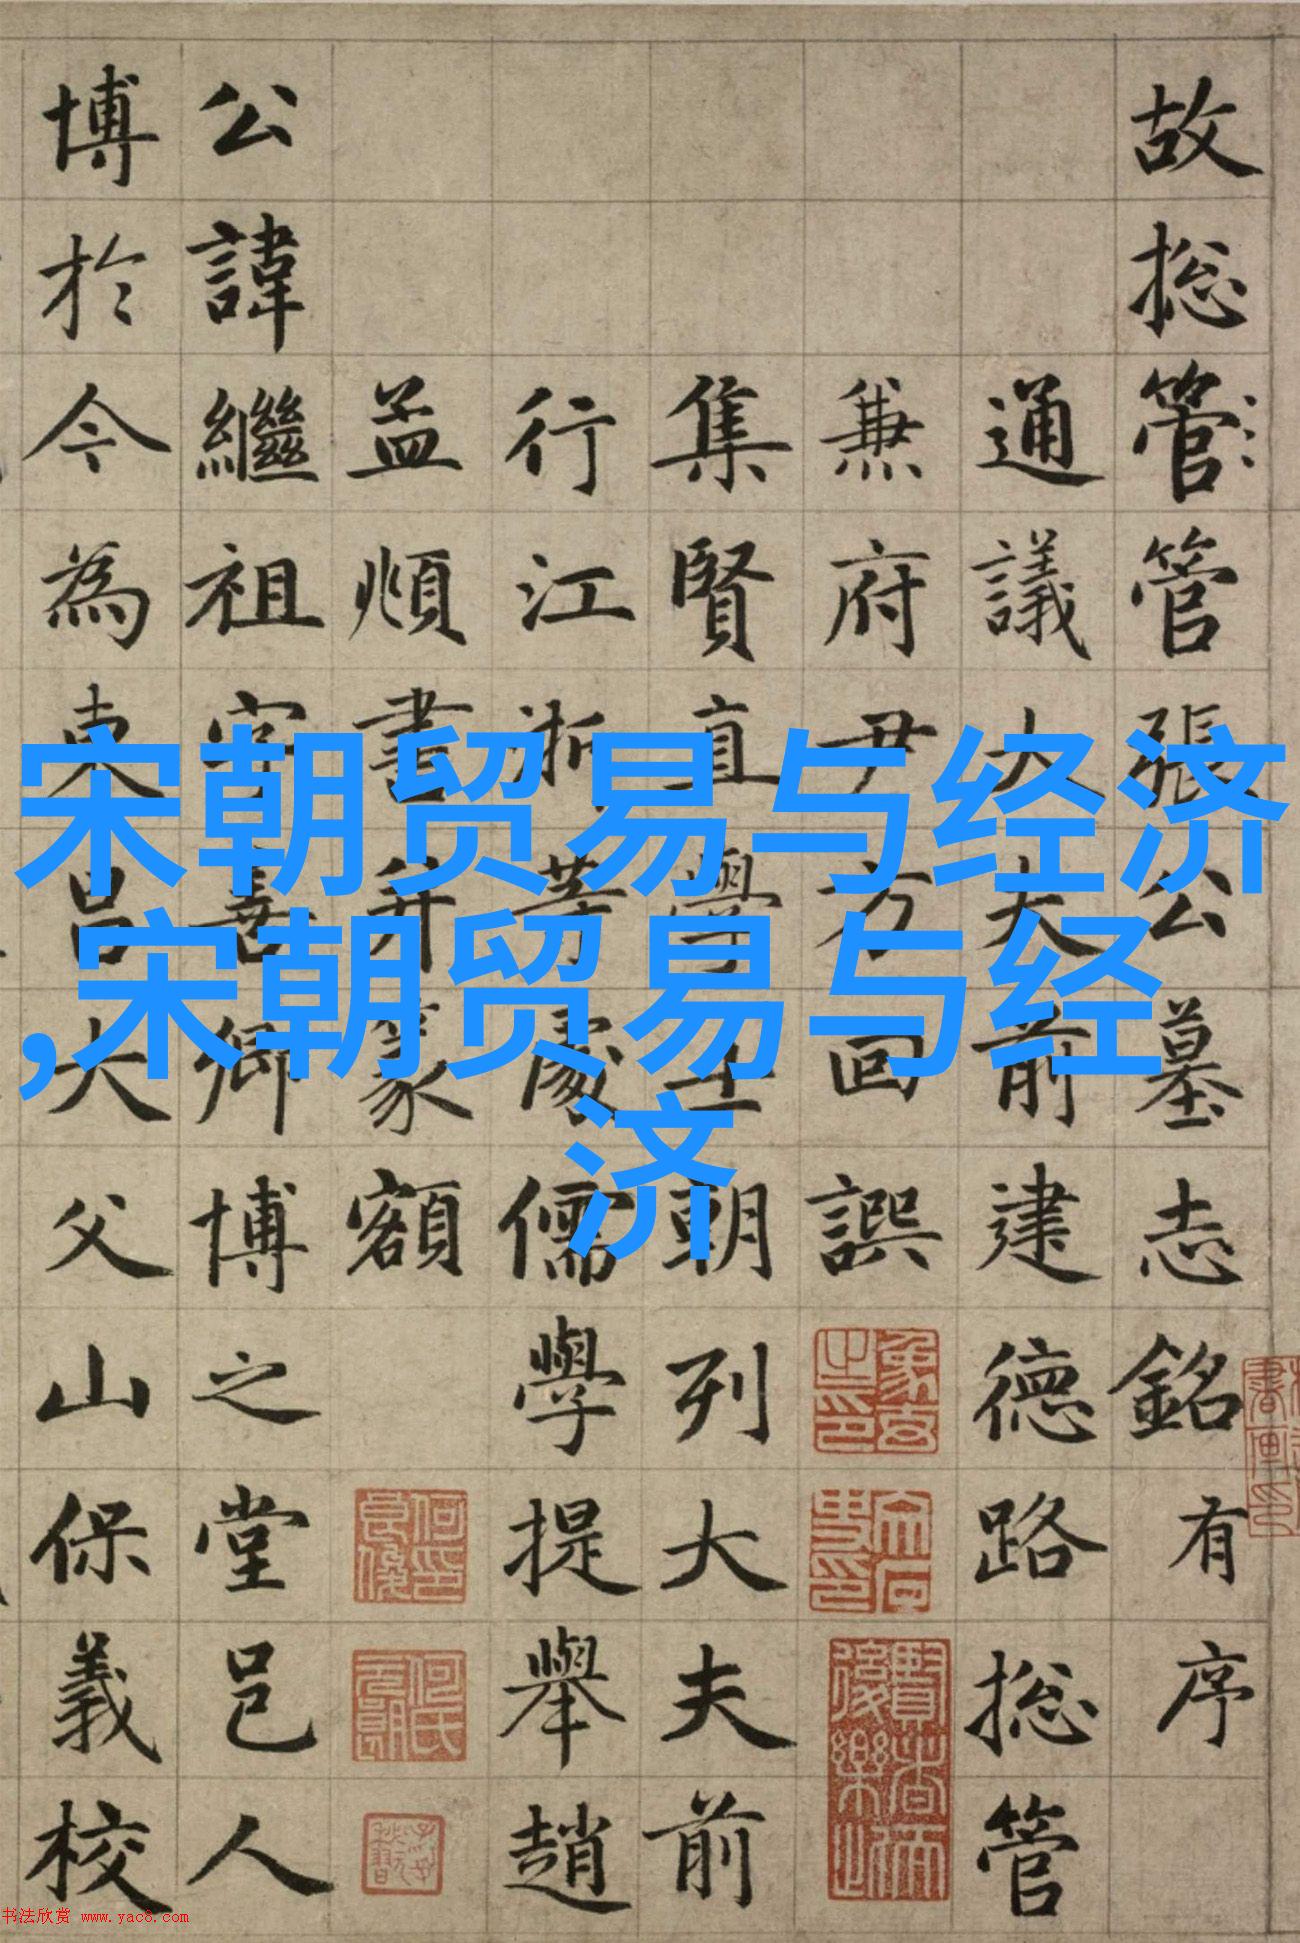 宋朝贸易与经济
,宋朝贸易与经
济
故捴管管張公墓志銘有序
通議大夫前建德路捴管
兼府尹方回譔
集賢直學士朝列大夫前
行江浙等處儒學提舉趙
孟頫書并篆額
公諱繼祖字喜卿博之堂邑人
博於今為東昌大父山保義校
书法欣赏 www.yac8.com